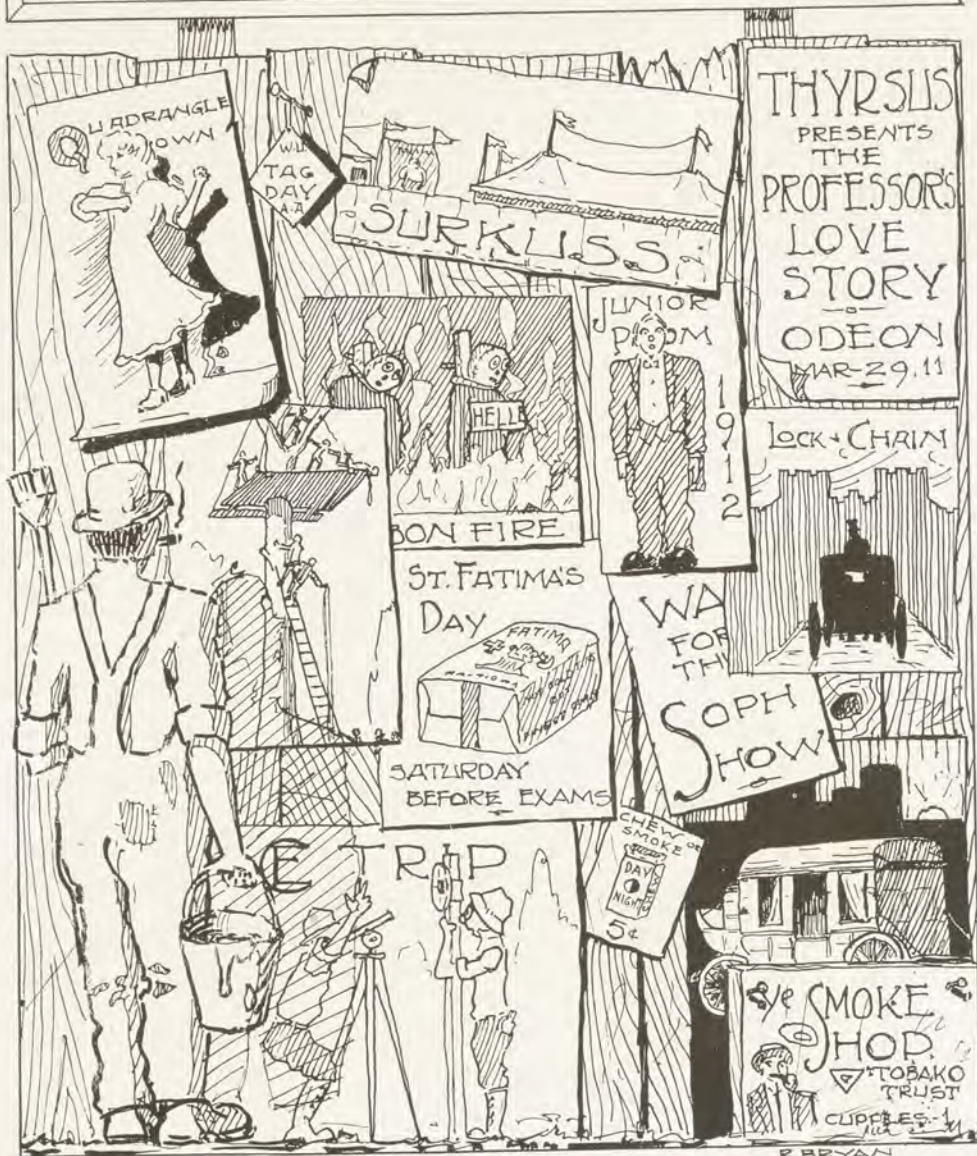 QUADRANGLE
TOWN
W.U.
TAG
DAY
A.A
SURKUSS
THYRSUS
PRESENTS
THE
PROFESSOR'S
LOVE
STORY
ODEON
MAR-29,11
HELL
BON FIRE
JUNIOR
PROM
1912
LOCK & CHAIN
ST. FATIMA'S
DAY
FATIMA
SATURDAY
BEFORE EXAMS
WA
FOR
TH
SOPH
SHOW
CE TRIP
CHEW OR
SMOKE
DAY
NIGHT
5¢
Ye SMOKE
SHOP
TOBAKO
TRUST
CUPPLES-1
R. BRYAN